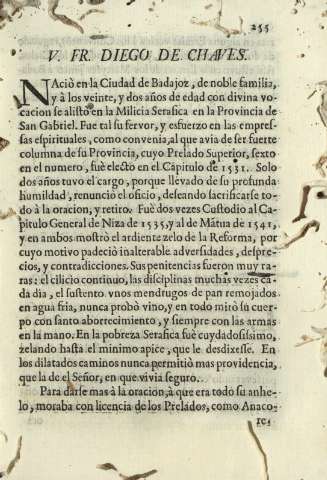 255
V. FR. DIEGO DE CHAVES.
NAciò en la Ciudad de Badajoz, de noble familia,
y à los veinte, y dos años de edad con divina vo-
cacion se alistò en la Milicia Serafica en la Provincia de
San Gabriel. Fue tal su fervor, y esfuerzo en las empres-
sas espirituales, como convenia, al que avia de ser fuerte
columna de su Provincia, cuyo Prelado Superior, sexto
en el numero, fuè electo en el Capitulo de 1531. Solo
dos años tuvo el cargo, porque llevado de su profunda
humildad, renunciò el oficio, deseando sacrificarse to-
do à la oracion, y retiro. Fuè dos vezes Custodio al Ca-
pitulo General de Niza de 1535, y al de Mãtua de 1541,
y en ambos mostrò el ardiente zelo de la Reforma, por
cuyo motivo padeciò inalterable adversidades, despre-
cios, y contradicciones. Sus penitencias fueron muy ra-
ras: el cilicio continuo, las disciplinas muchas vezes ca-
da dia, el sustento vnos mendrugos de pan remojados
en agua fria, nunca probò vino, y en todo mirò su cuer-
po con santo aborrecimiento, y siempre con las armas
en la mano. En la pobreza Serafica fuè cuydadosissimo,
zelando hasta el minimo apice, que le desdixesse. En
los dilatados caminos nunca permitiò mas providencia,
que la de el Señor, en que vivia seguro.
Para darse mas à la oracion, à que era todo su anhe-
lo, moraba con licencia de los Prelados, como Anaco-
re-